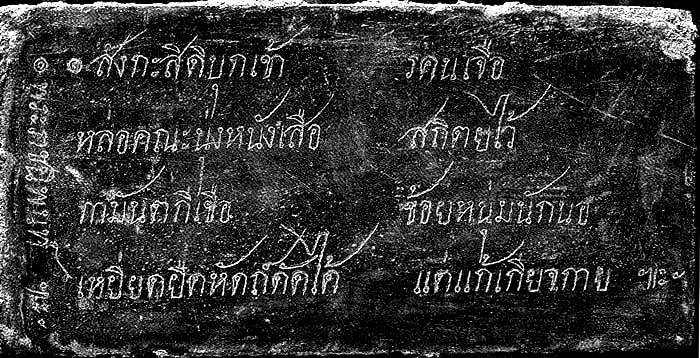 ๏ สังกะสีดิบุกเข้า รคนเจือ
หล่อคณะนุ่งหนังเสือ สถิตยไว้
กามันตกีเชื้อ ช้อยหนุ่มนักนอ
เหยียดยืดหัดถ์ดัดได้ แต่แก้เกียจกาย ฯะ